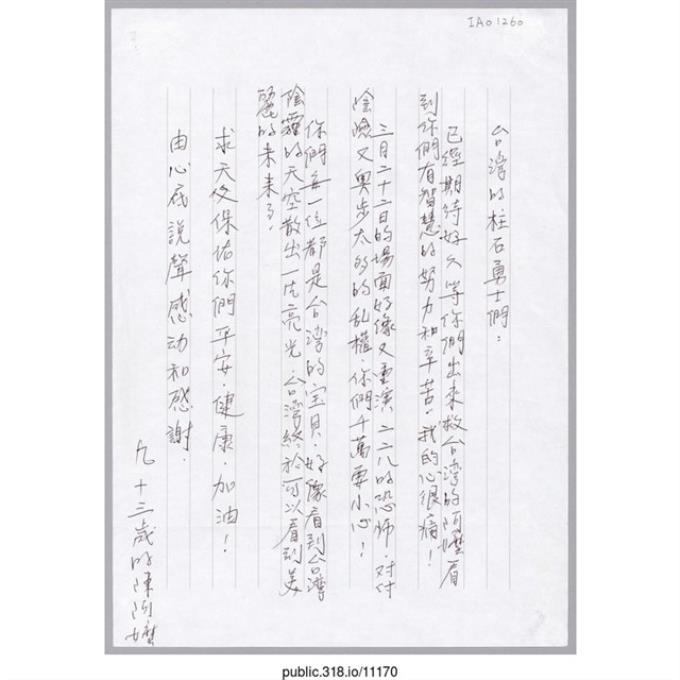 IAO1260
台湾的柱石勇士們：
已經期待好久等你們出來救台湾的阿嬤看
到你們有智慧的努力和辛苦。我的心很痛！
三月二十三日的場面好像又重演二二八的恐怖．対付
陰險又奧步太多的乱權．你們千萬要小心！
你們每一位都是台湾的宝贝．好像看到台湾
陰霾的天空散出一片亮光．台湾終於可以看到美
麗的未来了．
求天父保佑你們平安．健康．加油！
由心底說聲感动和感謝．
九十三歲的陳阿嬤
public.318.io/11170